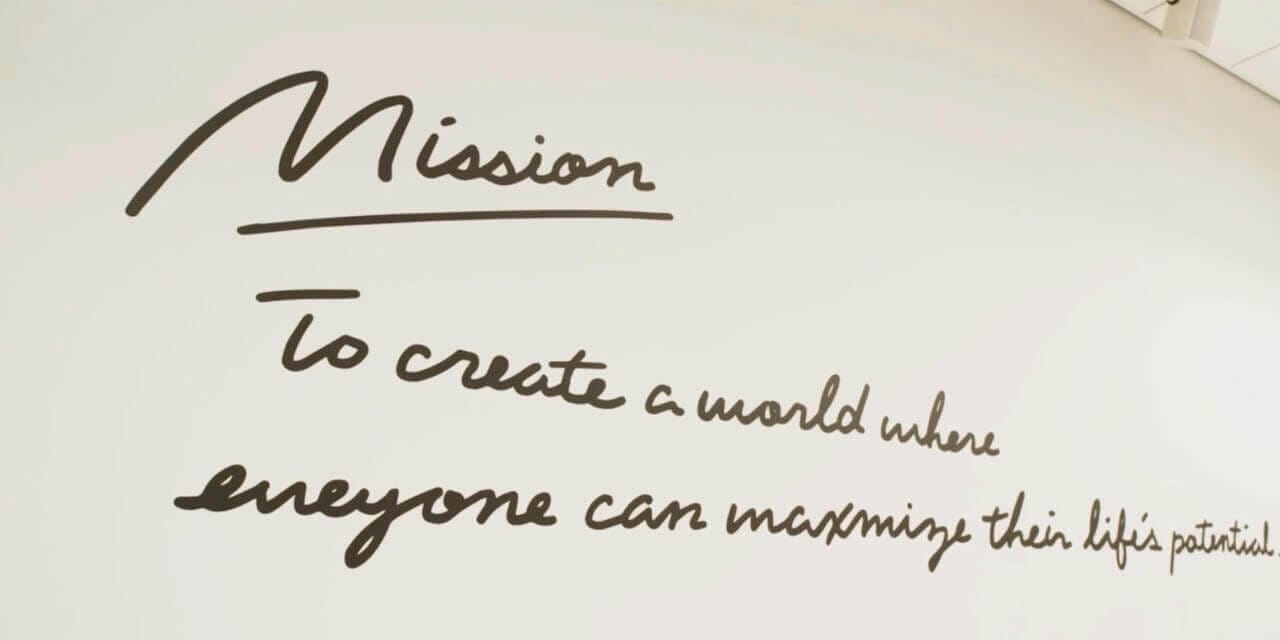 Mission
To create a world where
everyone can maxmize their life's potential.